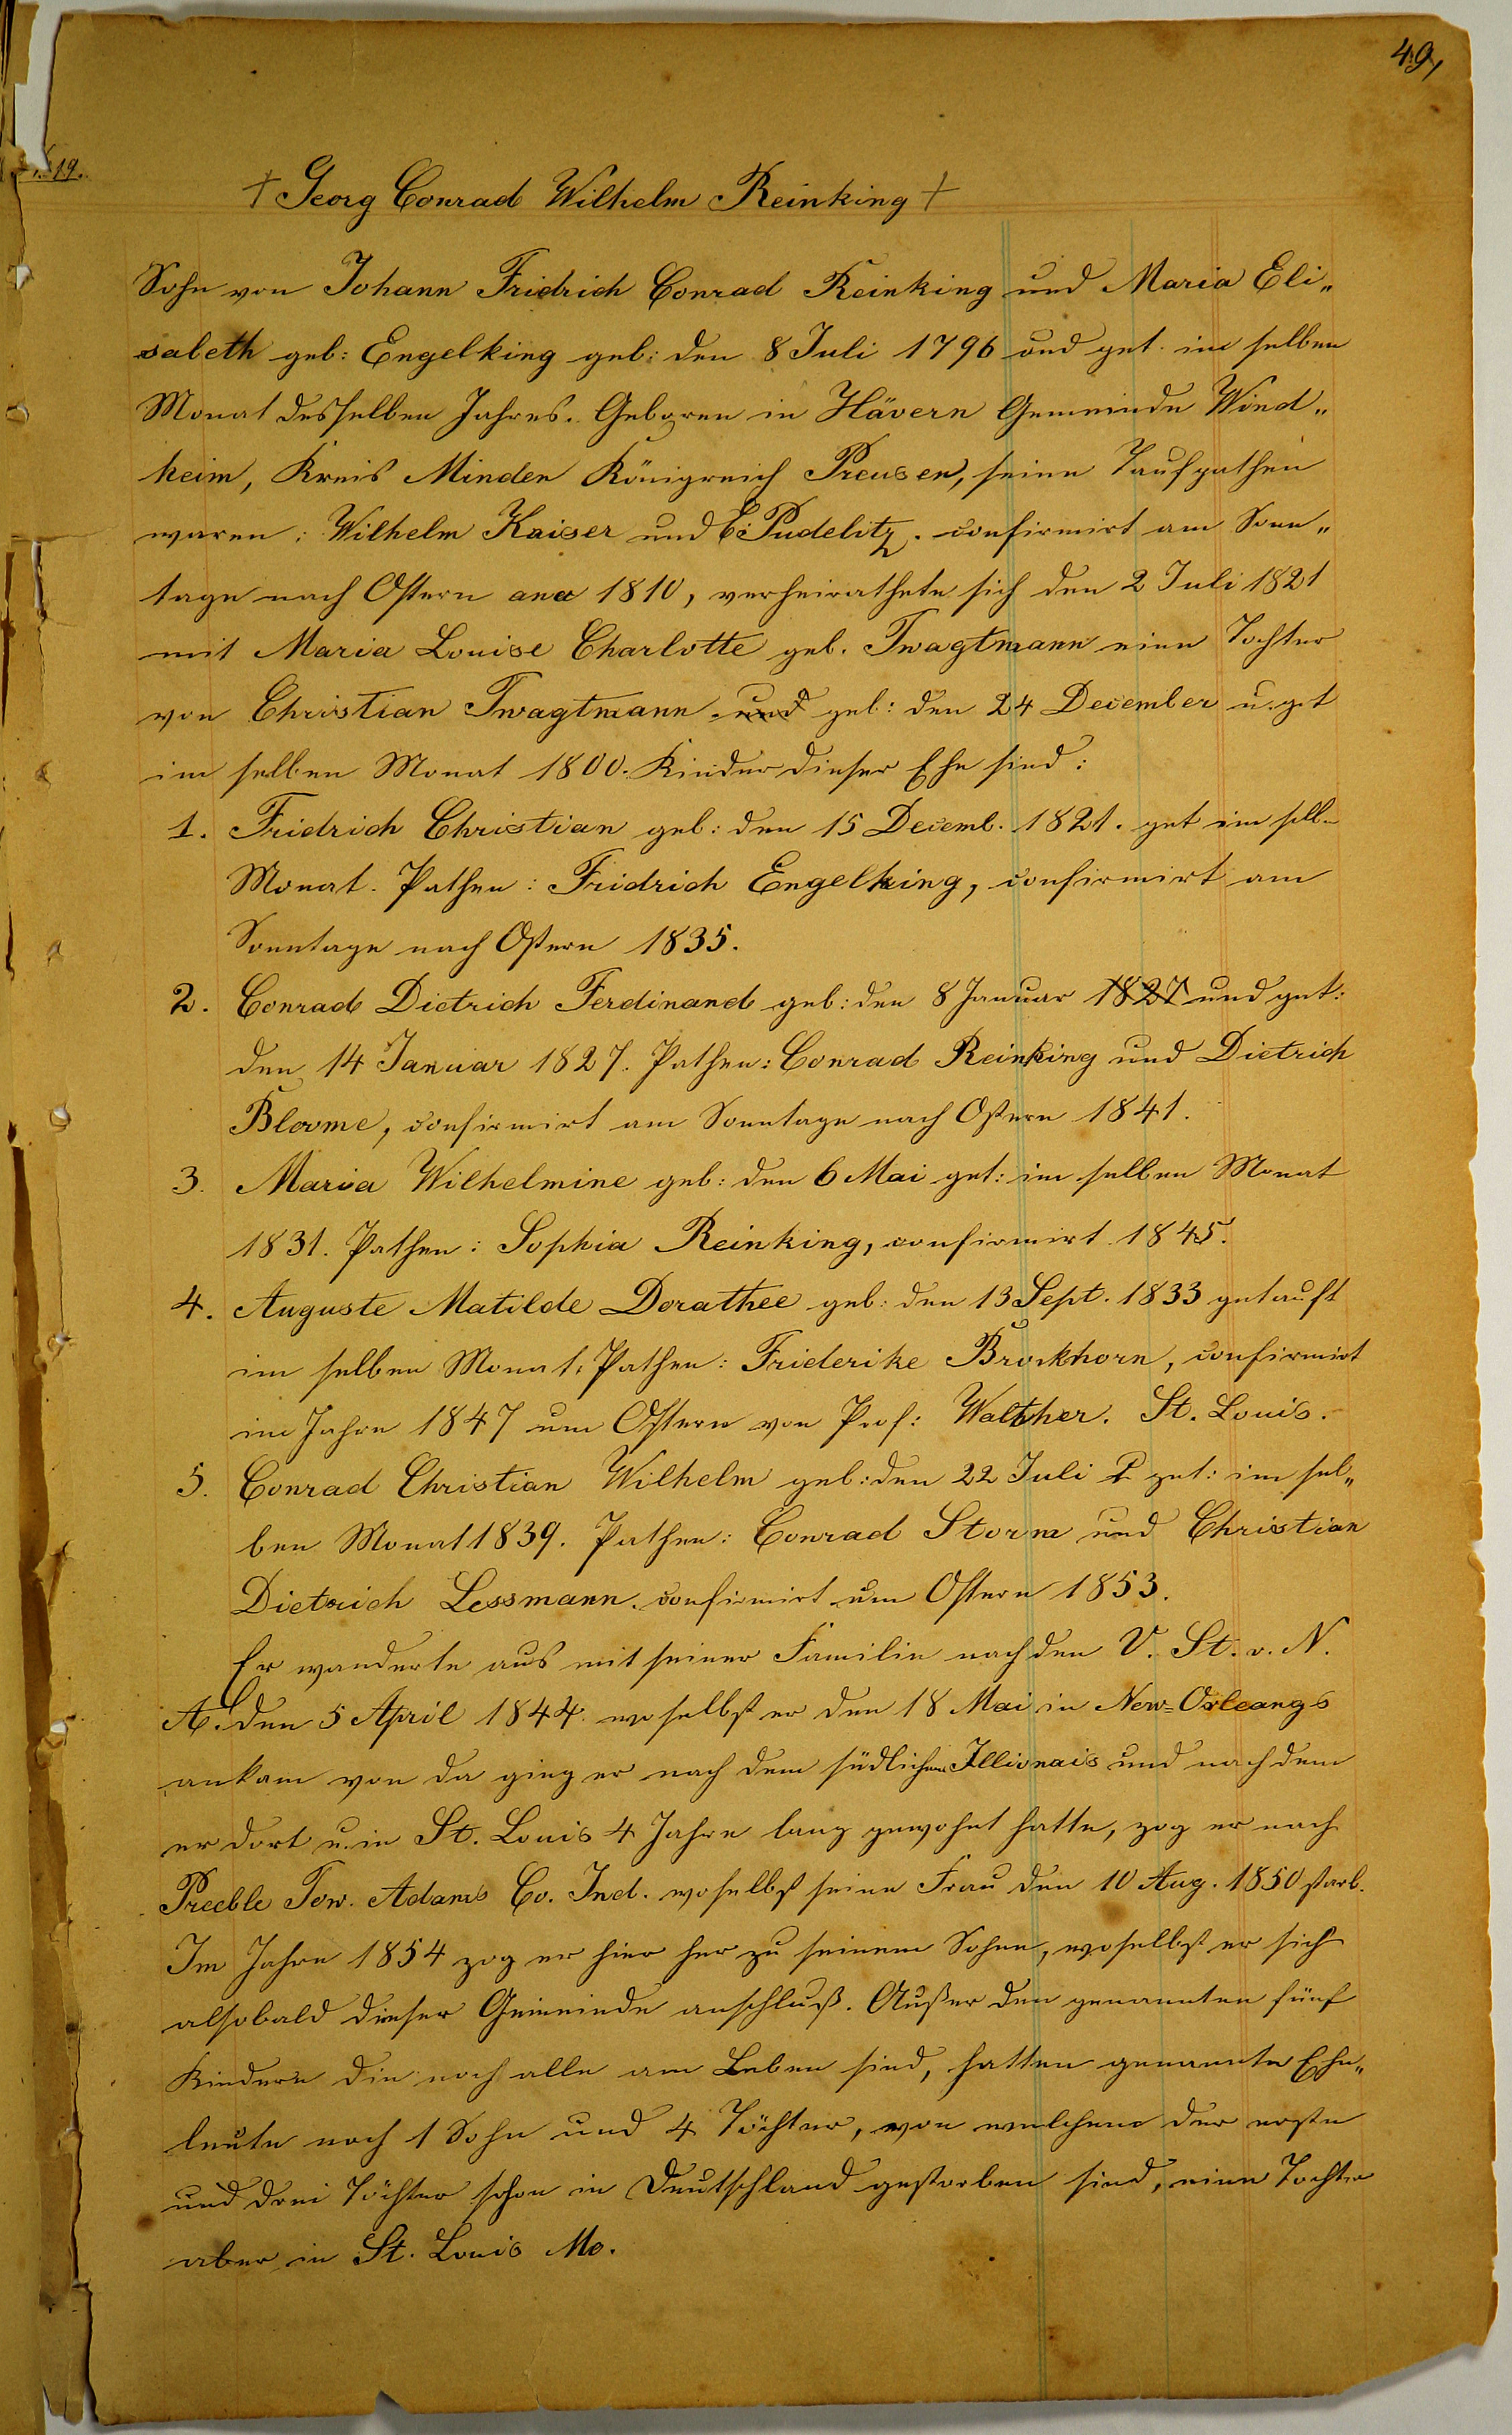 49,
19.
† Georg Conrad Wilhelm Reinking †
Sohn von Johann Fridrich Conrad Reinking und Maria Eli„
sabeth geb: Engelking geb: den 8 Juli 1796 und get. im selben
Monat desselben Jahres. Geboren in Hävern Gemeinde Wind„
heim, Kreis Minden Königreich Preusen, seine Taufpathen
waren: Wilhelm Kaiser und Pudelitz. confirmirt am Sonn„
tage nach Ostern 1810, verheirathete sich den 2 Juli 1821
mit Maria Louise Charlotte geb. Twagtmann eine Tochter
von Christian Twagtmann und geb: den 24 December u. get
im selben Monat 1800. Kinder dieser Ehe sind:
1. Fridrich Christian geb: den 15 Decemb. 1821. get im selb.
Monat. Pathen: Fridrich Engelking, confirmirt am
Sonntage nach Ostern 1835.
2. Conrad Dietrich Ferdinand geb: den 8 Januar 1827 und get:
den 14 Januar 1827. Pathen: Conrad Reinking und Dietrich
Bloome, confirmirt am Sonntage nach Ostern 1841.
3. Maria Wilhelmine geb: den 6 Mai get: im selben Monat
1831. Pathen: Sophia Reinking, confirmirt 1845.
4. Auguste Matilde Dorathee geb: den 13 Sept. 1833 getauft
im selben Monat. Pathen: Friderike Brockhorn, confirmirt
im Jahre 1847 um Ostern von Prof: Walther. St. Louis.
5. Conrad Christian Wilhelm geb: den 22 Juli get: im sel„
ben Monat 1839. Pathen: Conrad Storm und Christian
Dietrich Lessmann. confirmirt um Ostern 1853.
Er wanderte aus mit seiner Familie nach den V. St. v. N.
A. den 5 April 1844. woselbst er den 18 Mai in New=Orleangs
ankam von da ging er nach dem südlichen Illionais und nach dem
er dort u. in St. Louis 4 Jahre lang gewohnt hatte, zog er nach
Preeble Tow. Adams Co. Ind. woselbst seine Frau den 10 Aug. 1850 starb.
Im Jahre 1854 zog er hier her zu seinem Sohne, woselbst er sich
alsobald dieser Gemeinde anschluß. Außer den genannten fünf
Kindern die noch alle am Leben sind, hatten genannte Ehe„
leute noch 1 Sohn und 4 Töchter, von welchem der erste
und drei Töchter schon in Deutschland gestorben sind, eine Tochter
aber in St. Louis Mo.